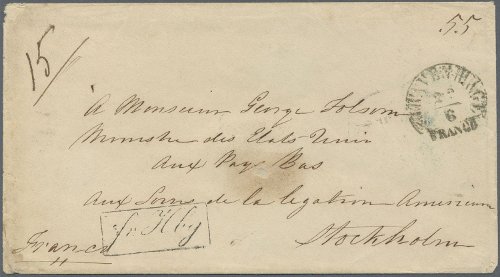 55
15/
'S GRAVENHAGE
2/6
FRANCO
A Monsieur George Folsom
Ministre des Etats Unis
Aux Pays Bas
Aux Soins de la legation American
Stockholm
Franco
fr. Hbg